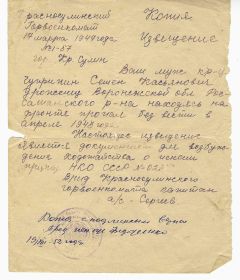 расносулинский Копия
Горвоенкомат
марта 194 года Извещение
№1-57
гор. Кр. Сулин
Ваш муж кр-ц
Чупригин Семен Касьянович
Уроженец Воронежской обл. Рос
сашанского р-на находясь на
фронте пропал без вести в
апреле 194 года.
Настоящее извещение
является документом для возбуж
дения ходатайства о пенсии
приказ НКО СССР №
Врид Красносулинского
горвоенкомата капитан
а/с - Сергеев
Копия с подлинным верна